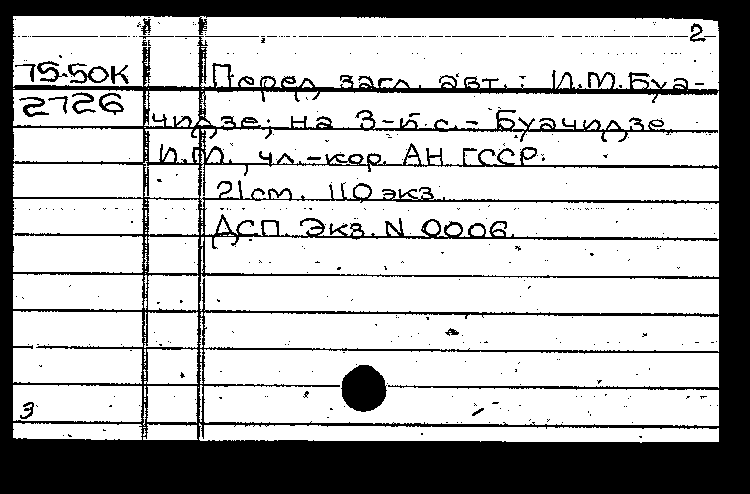 2
75-50К Перед загл. авт.: И.М.Буа-
2726 чидзе; на 3-й с.- Буачидзе
И.М., чл.-кор. АН ГССР.
21 cm. 110 экз.
ДСП. Экз. N 0006.
3